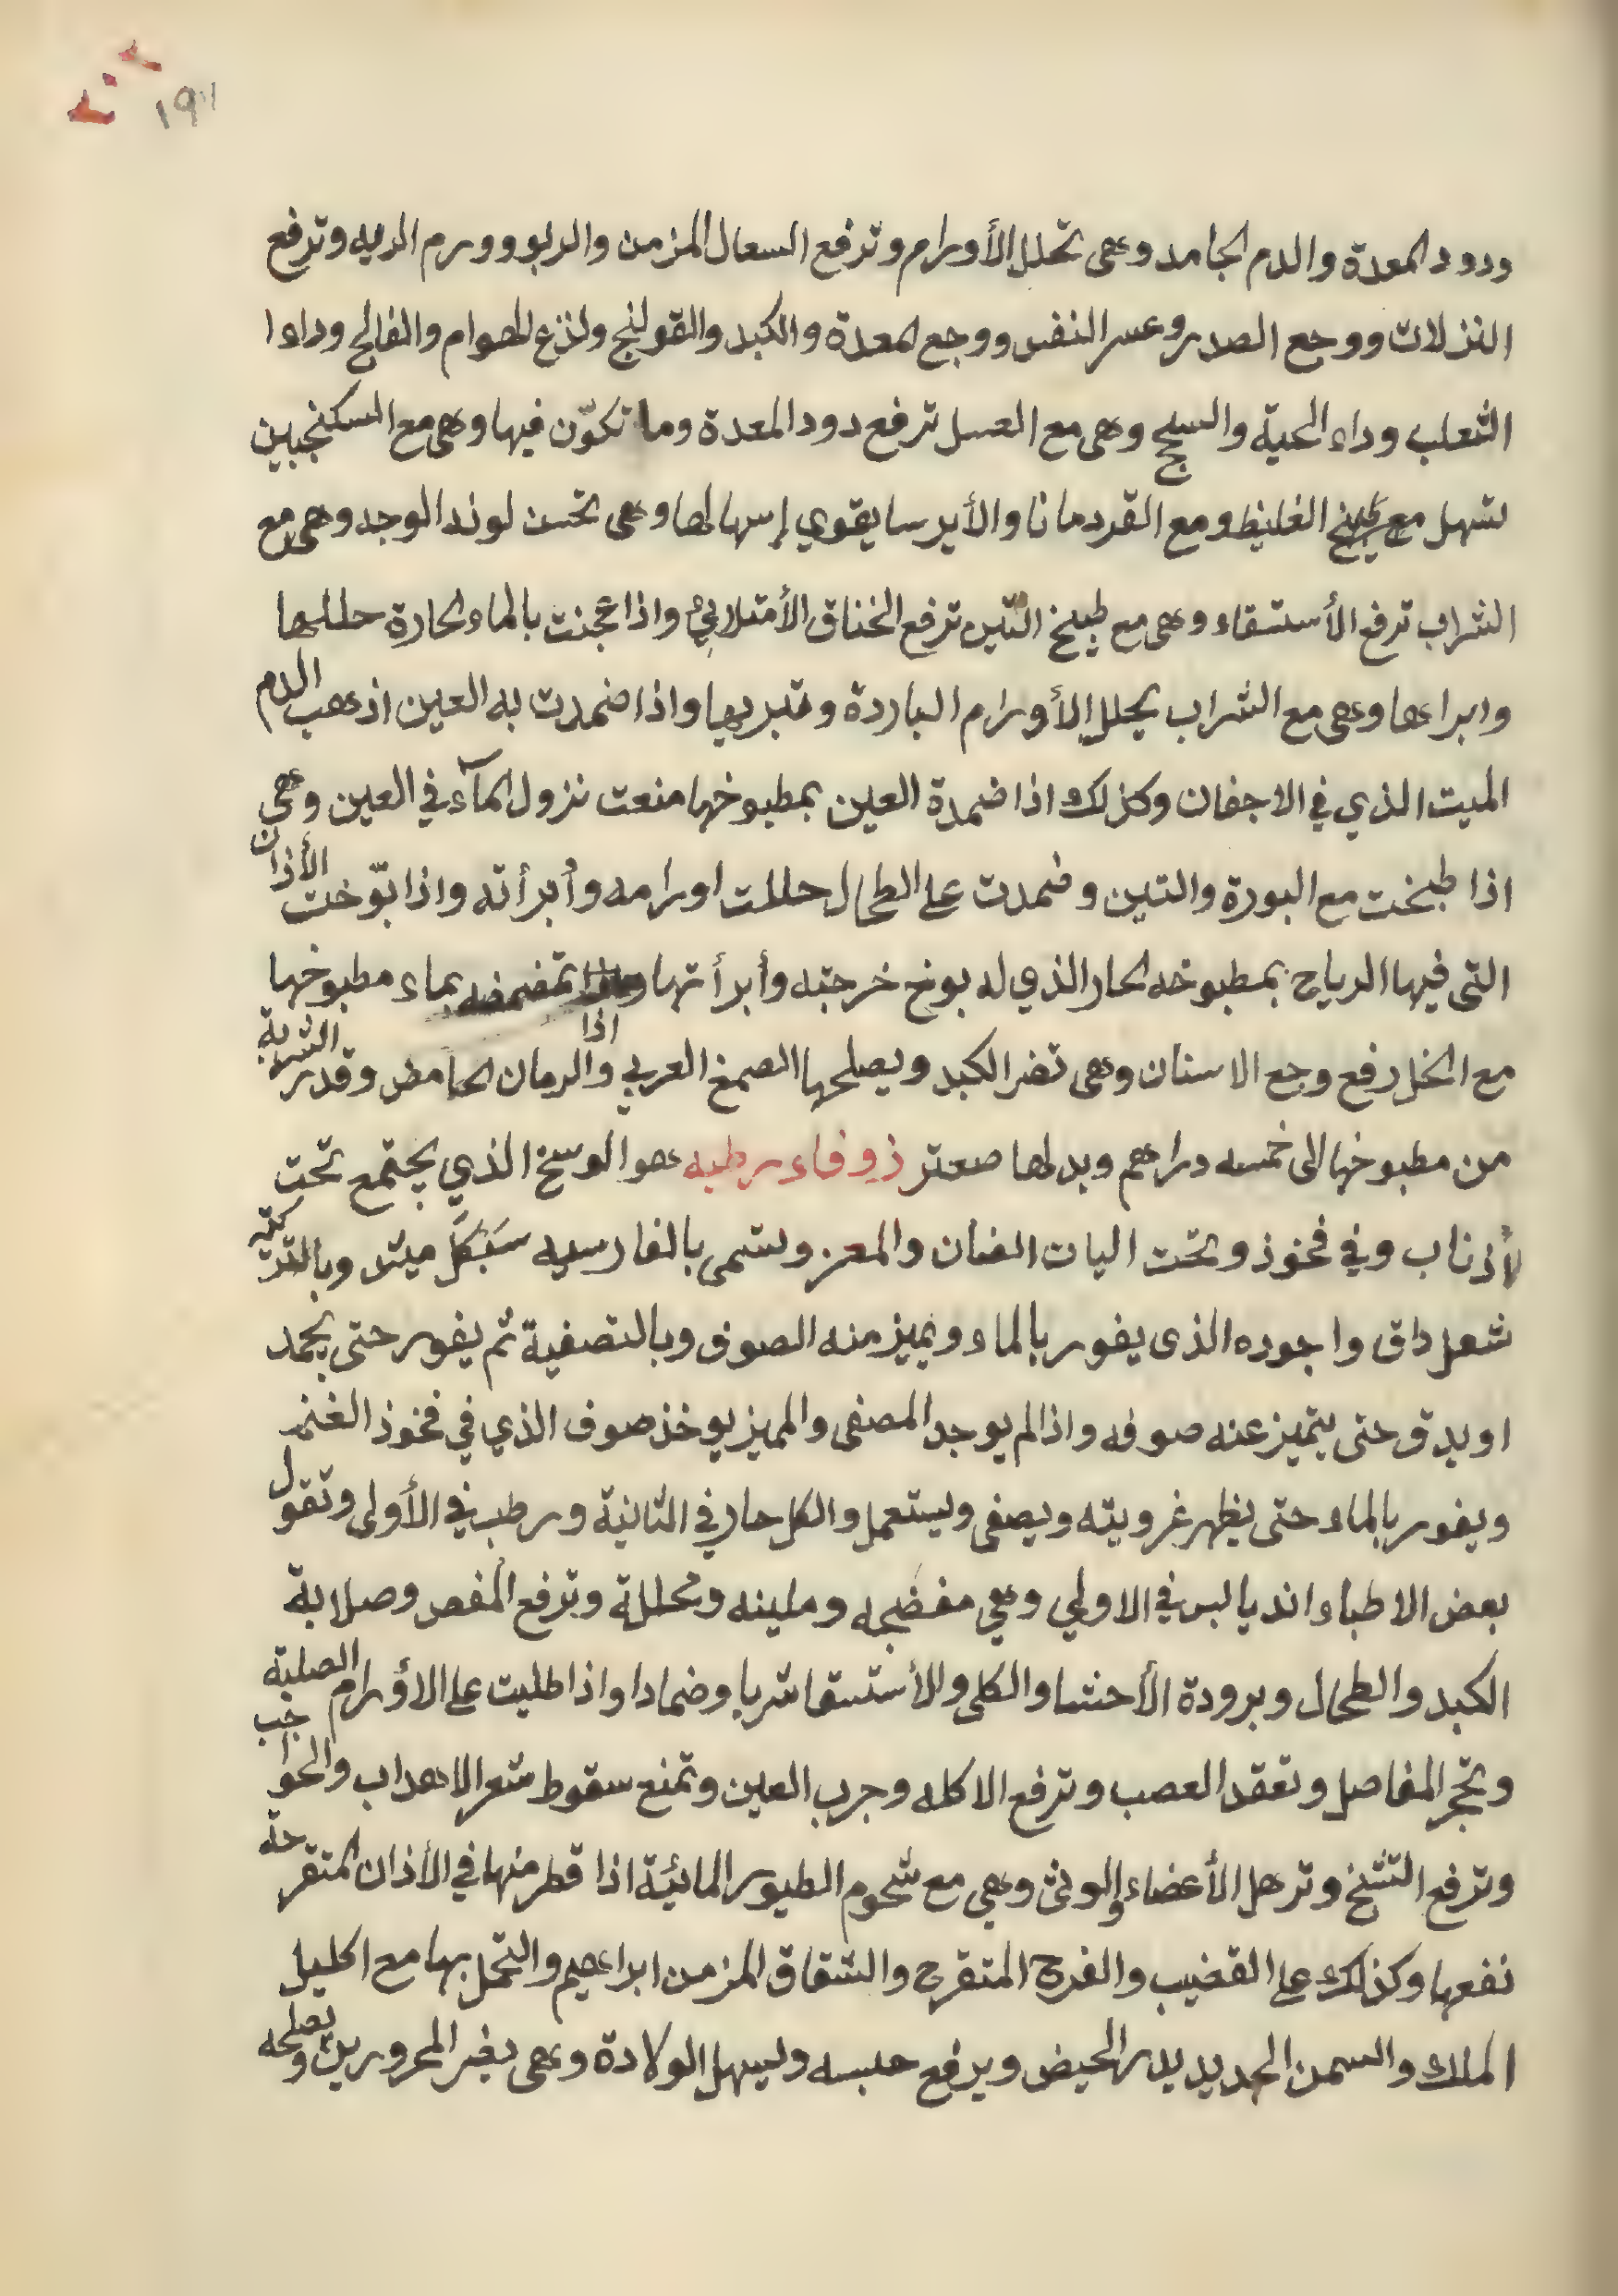 ٢٠٢
١٩١
ودود المعدة والدم الجامد وهى تحلل الأورام وترفع السعال المزمن والربو وورم الريه وترفع
النزلات ووجع الصدر وعسر النفس ووجع المعدة والكبد والقولنج ولذع الهوام والفالج وداء ا
الثعلب وداء الحية والسحج وهى مع العسل ترفع دود المعدة وما تكوّن فيها وهى مع السكنجبين
تسهل مع الغليظ ومع القردمانا والأيرسا يقوي إسهالها وهى تحسن لون الوجه وهى مع
الشراب ترفع الأستسقاء وهى مع طبيخ التين ترفع الخناق الأمتلائي واذا عجنت بالماء الحارة حللها
وابراءها وهى مع الشراب يحلل الأورام الباردة وتبريها واذا ضمدت به العين اذهب الدم
الميت الذي في الاجفان وكذلك اذا ضمدة العين بمطبوخها منعت نزول المآء في العين وهي
اذا طبخت مع البورة والتين وضمدت على الطحال حللت اورامه وأبرأته واذا بوّخت الأذان
التى فيها الرياح بمطبوخه الحار الذي له بوخ خرجته وأبرأتها واذا تمضمضه بماء مطبوخها
مع الخل رفع وجع الاسنان وهى تضر الكبد ويصلحها الصمغ العربي اذا والرمان الحامض وقدر الشربة
من مطبوخها الى خمسه دراهم وبدلها صعتر ذوفاء رطبه هو الوسخ الذي يجتمع تحت
لأذناب وفي فخوذ وتحت اليات الضان والمعز وتسمى بالفارسيه سَبَكَل ميتد وبالتركيه
شعل داق واجوده الذى يفور بالماء ويميز منه الصوف وبالتصفية ثم يفور حتى يجمد
او يدق حتى يتميز عنه صوفه واذا لم يوجد المصفى والمميز يوخذ صوف الذي في فخوذ الغنم
ويفور بالماء حتى يظهر غرويته ويصفى ويستعمل والكل حار في الثانية ورطب في الأولى وتقول
بعض الاطباء انه يابس في الاولي وهي مفضجه وملينه ومحللة وترفع المغص وصلابة
الكبد والطحال وبرودة الأحشا والكلى والأستسقا شربا وضمادا واذا طليت على الاؤرام الصلبة
وتحجر المفاصل وتعقد العصب وترفع الاكله وجرب العين وتمنع سقوط شعر الاهداب والحواجب
وترفع التشنخ وترهل الأعضاء والوثى وهي مع شحوم الطيور المائية اذا قطر منها في الأذان المتقرحة
نفعها وكذلك على القضيب والفرج المتقرح والشقاق المزمن ابراهيم والتحمل بها مع اكليل
الملك والسمن الجديد يدر الحيض ويرفع حبسه وليسهل الولادة وهى يضر المحرورين ويصلحه